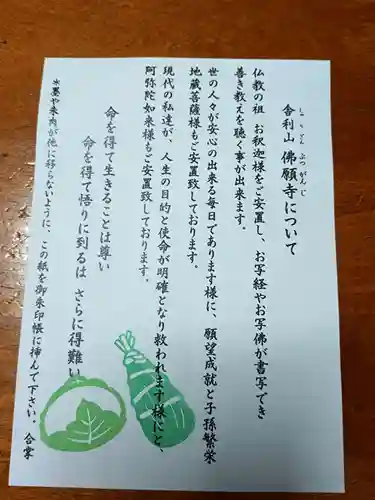 しゃりさん　ぶつがんじ
舎利山　佛願寺について
仏教の祖　お釈迦様をご安置し、お写経やお写佛が書写でき
善き教えを聴く事が出来ます。
世の人々が安心の出来る毎日であります様に、願望成就と子孫繁栄
地蔵菩薩様もご安置致しております。
現代の私達が、人生の目的と使命が明確となり救われます様にと、
阿弥陀如来様もご安置致しております。
命を得て生きることは尊い
命を得て悟りに到るは　さらに得難い
＊墨や朱肉が他に移らないように、この紙を御朱印帳に挿んで下さい。　合掌